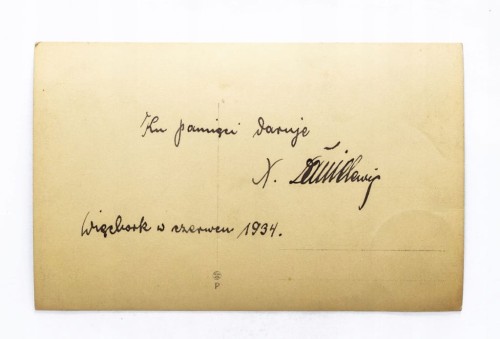 Ku pamięci daruje
X.
Więcbork w czerwcu 1934.
P